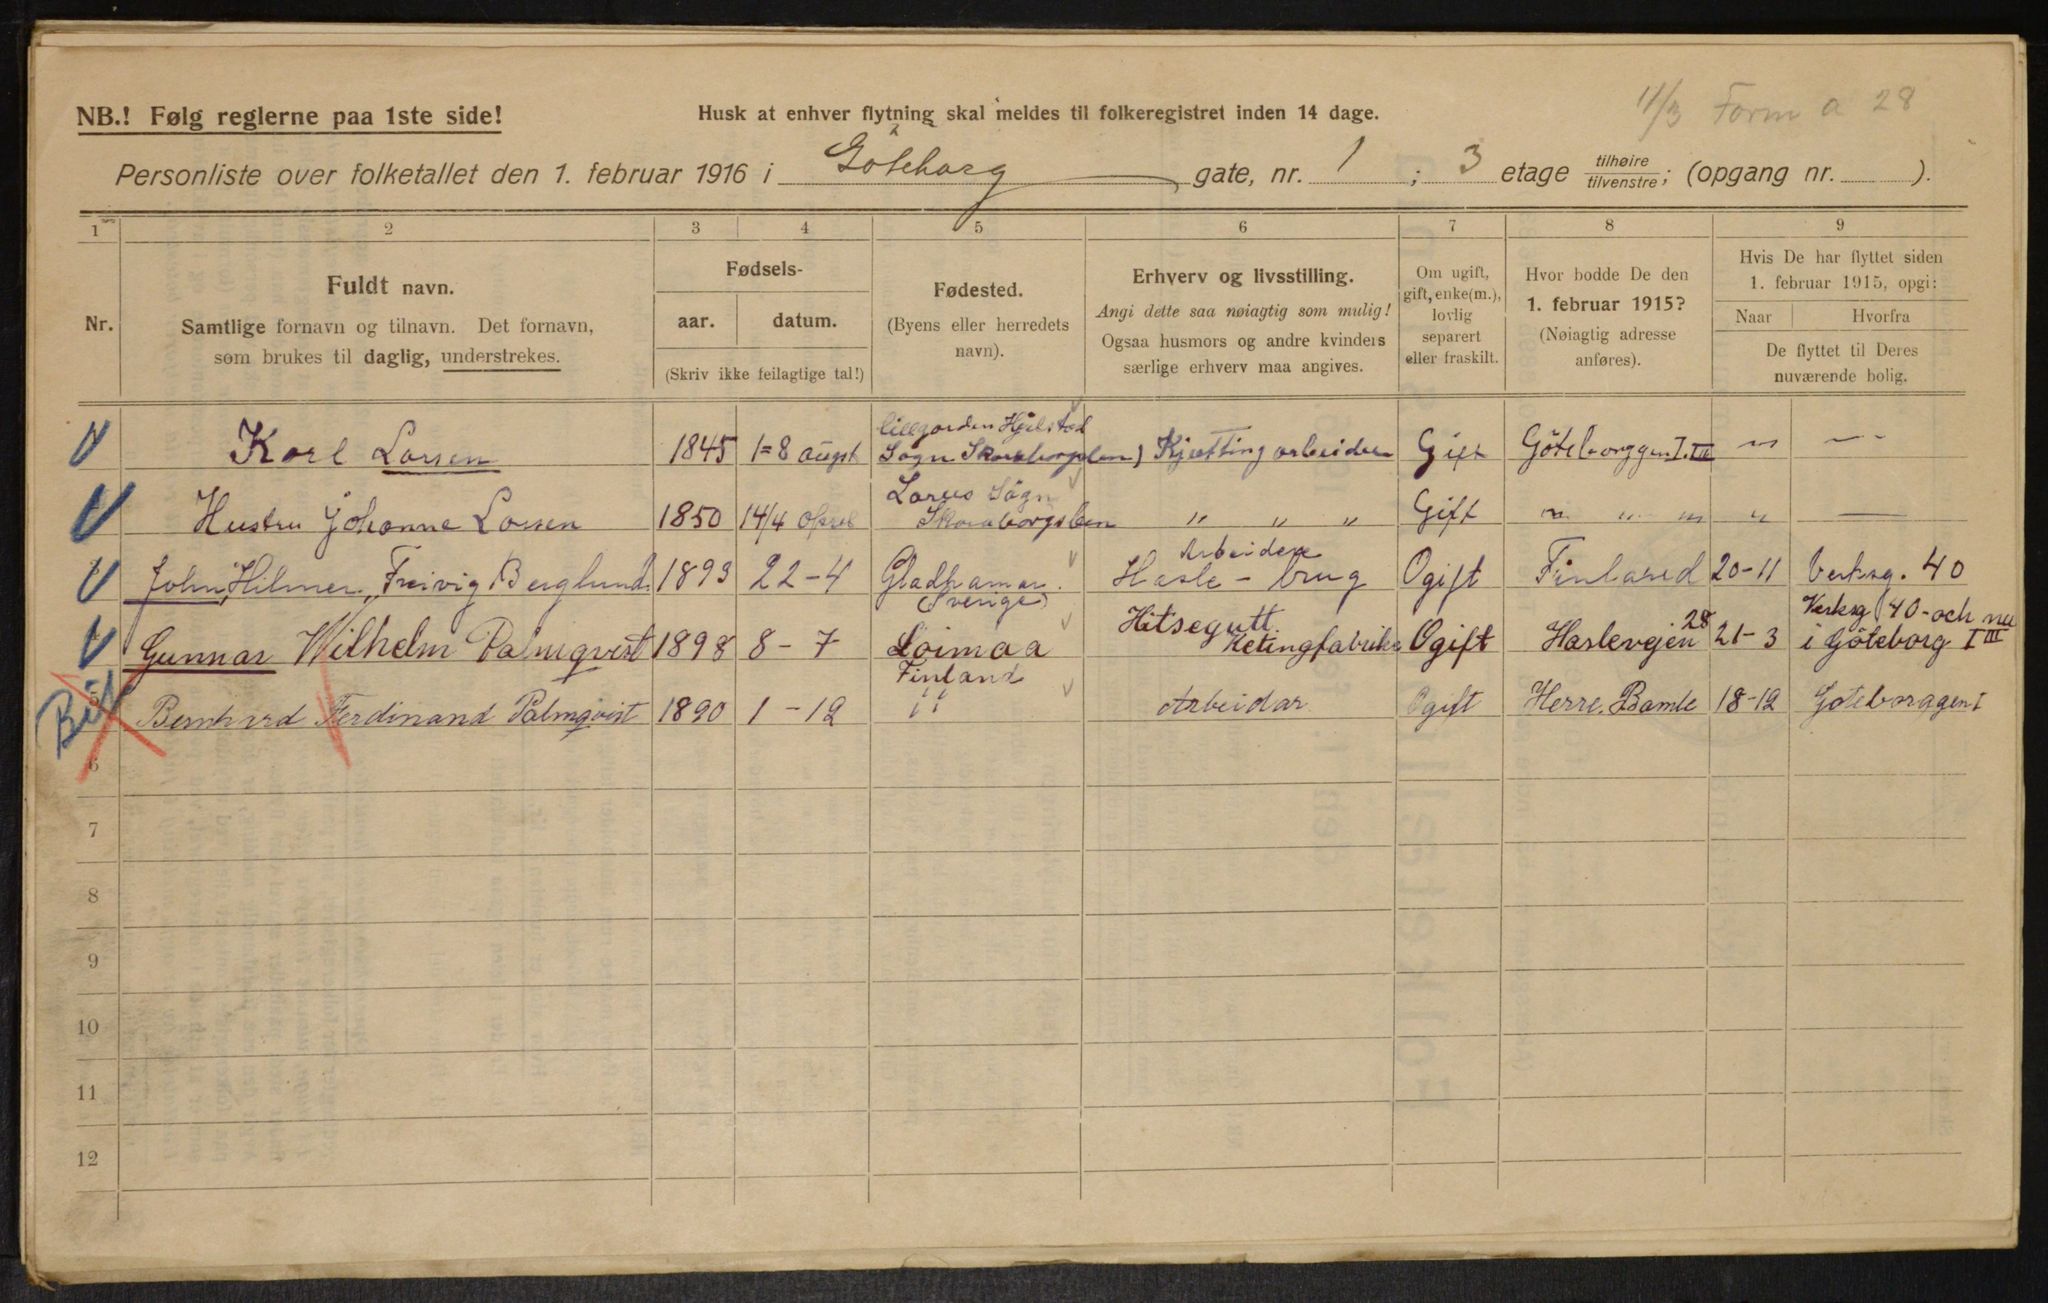 11/3 Form a 28
NB.! Følg reglerne paa 1ste side!
Husk at enhver flytning skal meldes til folkeregistret inden 14 dage.
Personliste over folketallet den 1. februar 1916 i Göteborg gate, nr. 1 ; 3 etage tilhøire/tilvenstre; (opgang nr. ).
1 2 3 4 5 6 7 8 9
Nr.
Fuldt navn.
Samtlige fornavn og tilnavn. Det fornavn,
som brukes til daglig, understrekes.
Fødsels-
aar. datum.
(Skriv ikke feilagtige tal!)
Fødested.
(Byens eller herredets
navn).
Erhverv og livsstilling.
Angi dette saa nøiagtig som mulig!
Ogsaa husmors og andre kvinders
særlige erhverv maa angives.
Om ugift,
gift, enke(m.),
lovlig
separert
eller fraskilt.
Hvor bodde De den
1. februar 1915?
(Nøiagtig adresse
anføres).
Hvis De har flyttet siden
1. februar 1915, opgi:
Naar Hvorfra
De flyttet til Deres
nuværende bolig.
Karl Larsen 1845 1=8 augst Lillgorden Sogn Skaraborgslen Kjætting arbeider Gift Göteborggen I. III " —
Hustru Johanne Larsen 1850 14/4 april Sögn Skaraborgslen " " " Gift " " " " —
John, Hilmer, Freivig Berglund 1893 22-4 Gladhamar (Sverige) Arbeider Hasle - brug Ogift Finland 20-11 Verksg. 40
Gunnar Wilhelm Palmqvist 1898 8-7 Loimaa Finland Hitsegutt Ketingfabrike Ogift Haslevejen 28 21-3 Verksg 40 - och nu i Göteborg I III
5 Bernhard Ferdinand Palmqvist 1890 1-12 " Arbeidar Ogift Herre. Bamle 18-12 Goteborggen I
6
7
8
9
10
11
12